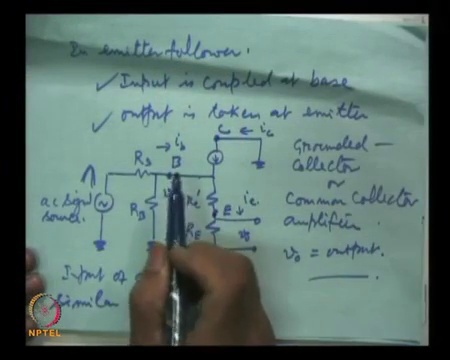 In emitter follower.
✓ Input is coupled at base
✓ output is taken at emitter
→ ib
C ← ic
RS
B
ac signal
source.
RB
re'
E ↓ ie
RE
vo
Grounded -
Collector
or
Common Collector
amplifier.
vo = output.
Input of
Similar
NPTEL